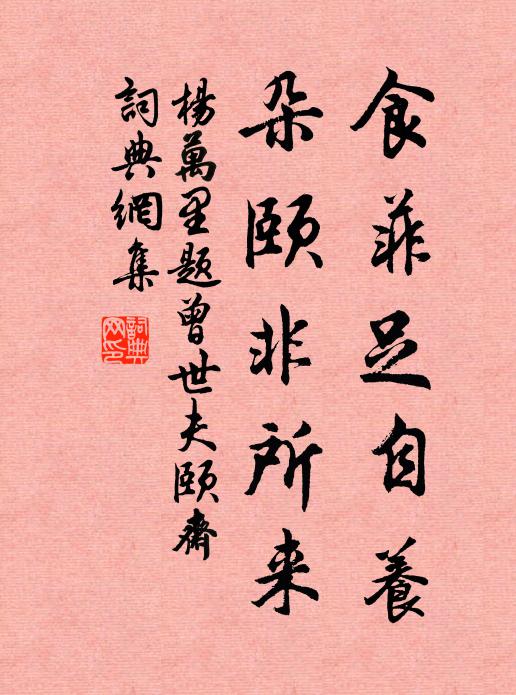 食菲足自養
朵頤非所来
楊萬里題曾世夫頤齋
詞典網集
詞典网印